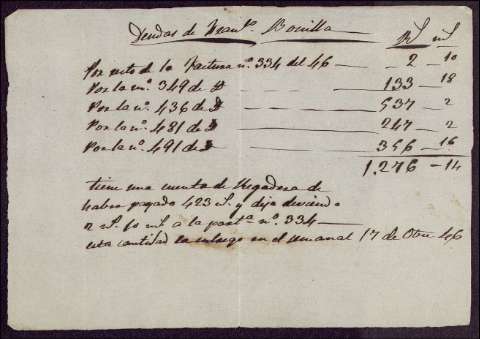 Deudas de Fran.co Bonilla
Rs ms
Por resto de la Factura nº. 334 del 46 — 2 — 10
Por la nº. 349 de D — 133 — 18
Por la nº. 436 de D — 537 — 2
Por la nº. 481 de D — 247 — 2
Por la nº. 491 de D — 356 — 16
1,276 — 14
tiene una cuenta de
haber pagado 423 rs. y dejo deviendo
2 rs. 10 ms a la part.a nº. 334
esta cantidad en el semanal 17 de Otre 46